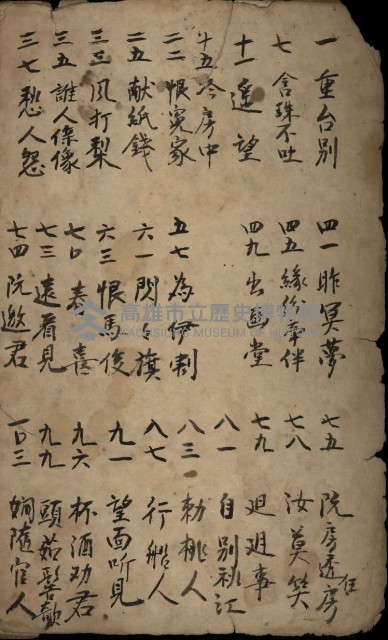 一 重台別
七 含珠不吐
十一 遙望
十五 冷房中
二二 恨冤家
二五 献紙錢
三三 風打梨
三五 誰人像
三七 愁人怨
四一 昨冥夢
四五 緣份幸伴
四九 出画堂
五七 為伊割
六一 閃
六三 恨馬俊
七口 喜
七三 遠看見
七四 阮邀君
七五 阮房透房
七八 汝莫笑
七九 廻廻事
八一 自別
八三 桃人
八七 行船人
九一 望面听見
九六 杯酒劝君
九九 頭茹髻
一口三 嫺隨官人
高雄市立歷史博物館
KAOHSIUNG MUSEUM OF HISTORY